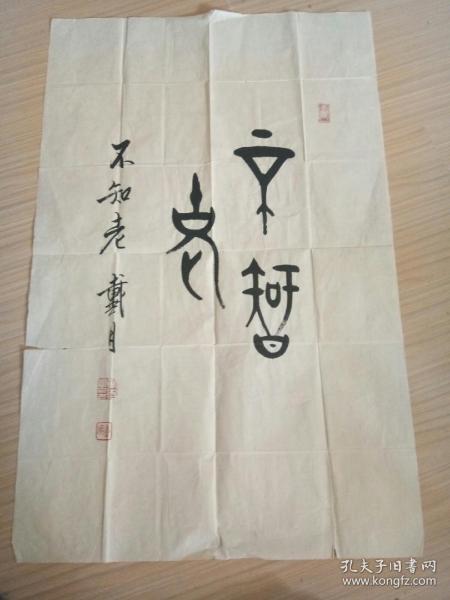 不知
老
不知老 戴月
孔夫子旧书网
www.kongfz.com